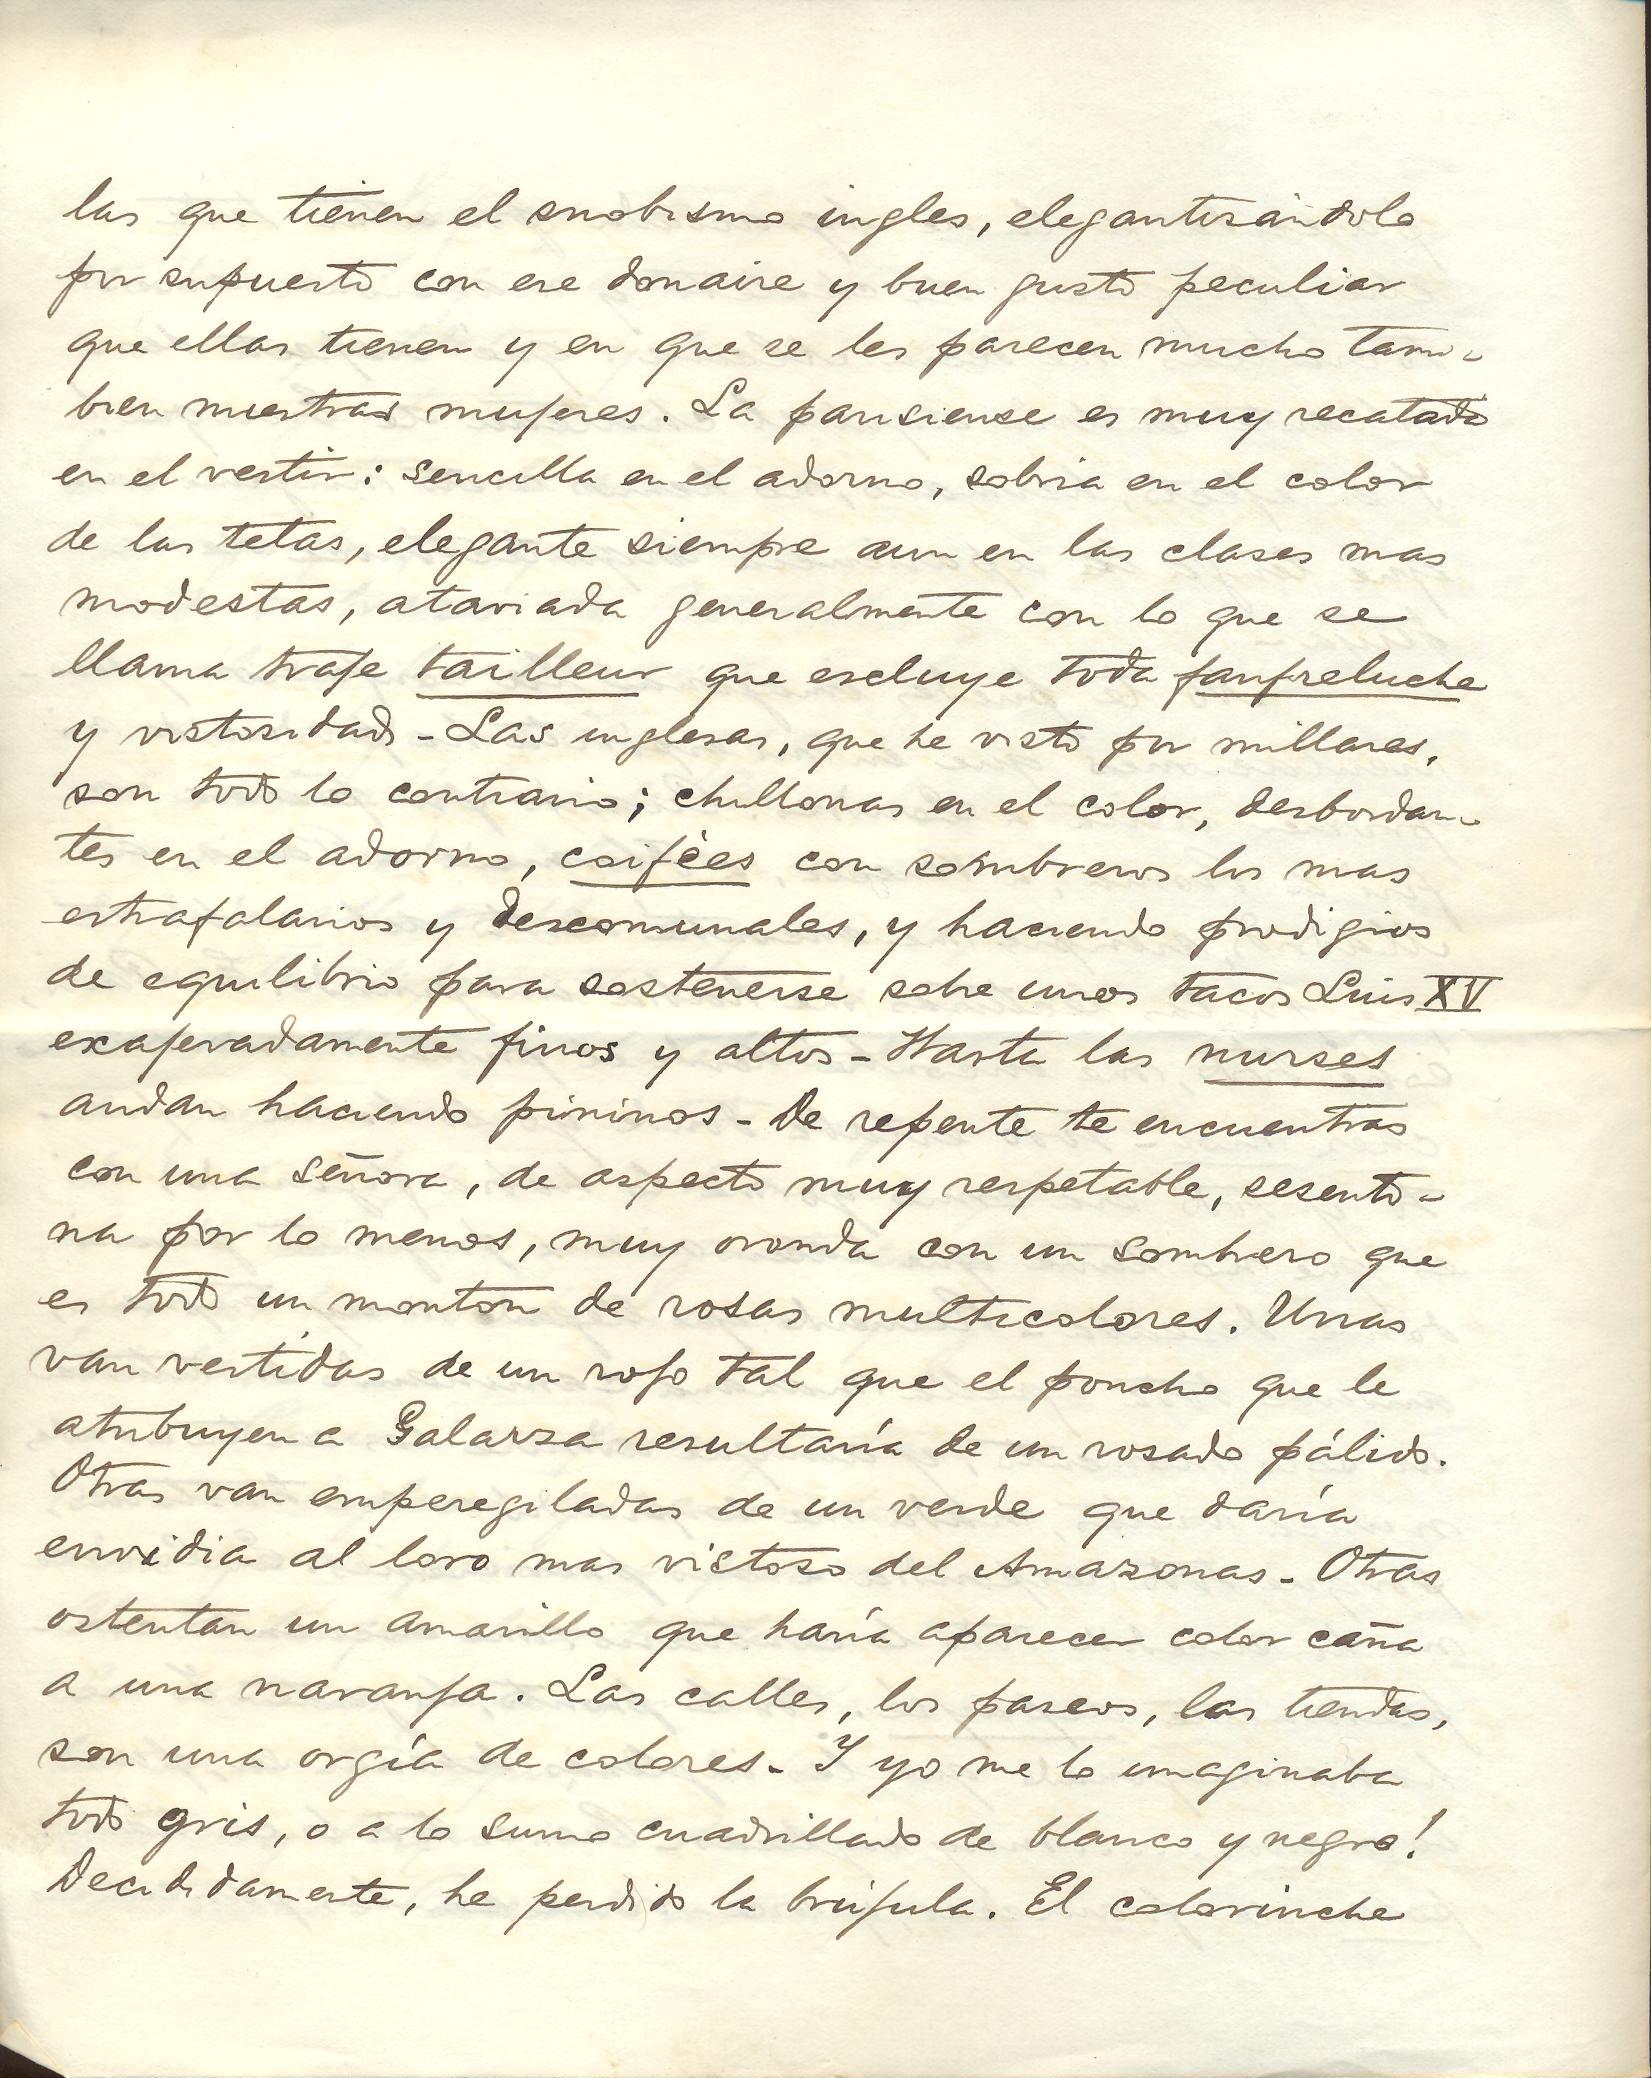 las que tienen el snobismo ingles, elegantisándolo
por supuesto con ese donaire y buen gusto peculiar
que ellas tienen y en que se les parecen mucho tam-
bien nuestras mujeres. La parisiense es muy recatada
en el vestir: sencilla en el adorno, sobria en el color
de las telas, elegante siempre aun en las clases mas
modestas, ataviada generalmente con lo que se
llama traje tailleur que escluye toda fanfreluche
y vistosidad - Las inglesas, que he visto por millares,
son todo lo contrario; chillonas en el color, desbordan-
tes en el adorno, coifées con sombreros los mas
estrafalarios y descomunales, y haciendo prodigios
de equilibrio para sostenerse sobre unos tacos Luis XV
exajeradamente finos y altos - Hasta las nurses
andan haciendo pininos - De repente te encuentras
con una señora, de aspecto muy respetable, sesento-
na por lo menos, muy oronda con un sombrero que
es todo un monton de rosas multicolores. Unas
van vestidas de un rojo tal que el poncho que le
atribuyen a Galarza resultaría de un rosado pálido.
Otras van emperegiladas de un verde que daría
envidia al loro mas vistoso del Amazonas - Otras
ostentan un amarillo que haría aparecer color caña
a una naranja. Las calles, los paseos, las tiendas,
son una orgía de colores - Y yo me lo imaginaba
todo gris, o a lo sumo cuadrillado de blanco y negro!
Decididamente, he perdido la brújula. El colorinche